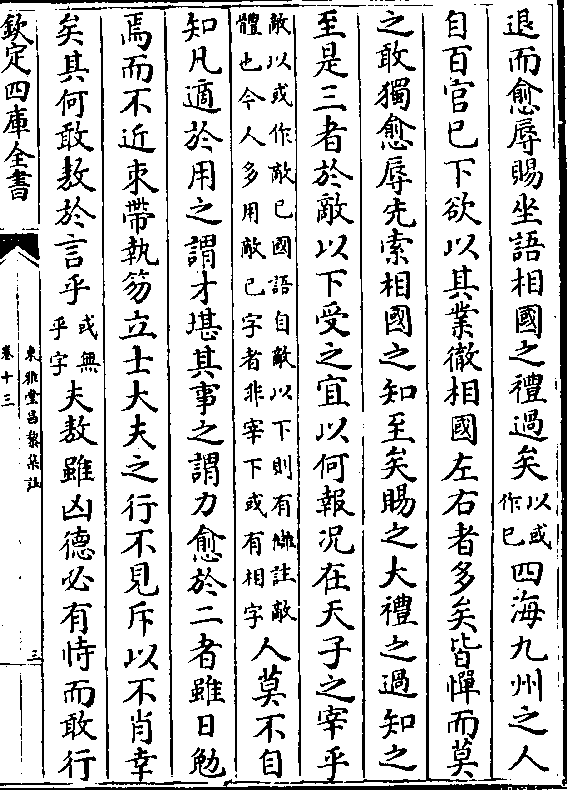 退而愈辱賜坐語相國之禮過矣以或作已四海九州之人
自百官已下欲以其業徹相國左右者多矣皆憚而莫
之敢獨愈辱先索相國之知至矣賜之大禮之過知之
至是三者於敵以下受之宜以何報況在天子之宰乎
敵以或作敵已國語自敵以下則有讎註敵
體也今人多用敵已字者非宰下或有相字
人莫不自
知凡適於用之謂才堪其事之謂力愈於二者雖日勉
焉而不近束帶執笏立士大夫之行不見斥以不肖幸
矣其何敢敖於言乎或無乎字夫敖雖凶德必有恃而敢行
欽定四庫全書
東雅堂昌黎集註
卷十三
三